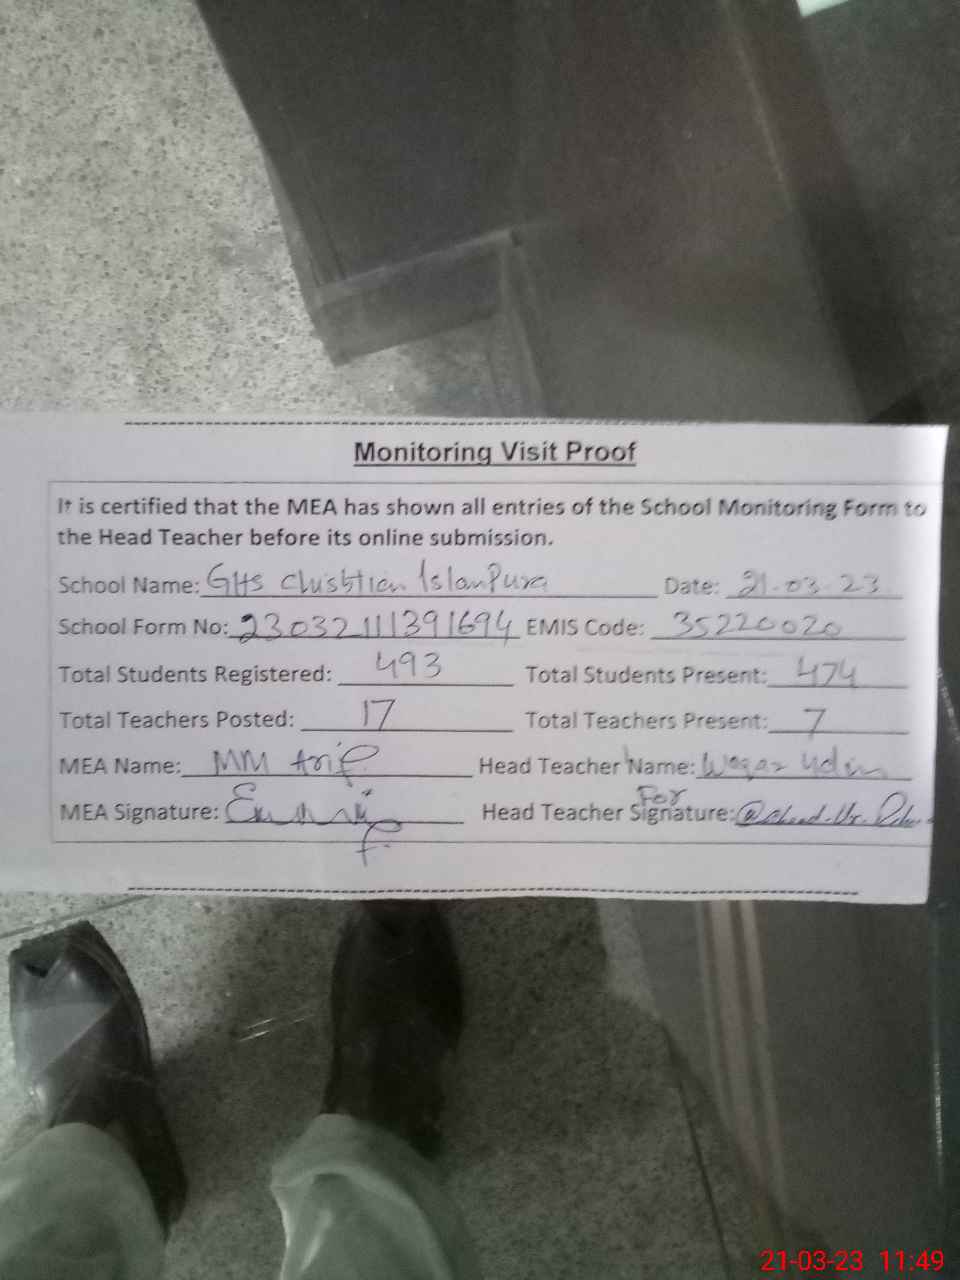 Monitoring Visit Proof
It is certified that the MEA has shown all entries of the School Monitoring Form to
the Head Teacher before its online submission.
School Name: GHS Chisbtian IslamPura Date: 21-03-23
School Form No: 23032111391694 EMIS Code: 35220020
Total Students Registered: 493 Total Students Present: 474
Total Teachers Posted: 17 Total Teachers Present: 7
MEA Name: MM Arif Head Teacher Name: Waqar udin
For
MEA Signature: Head Teacher Signature:
21-03-23 11:49